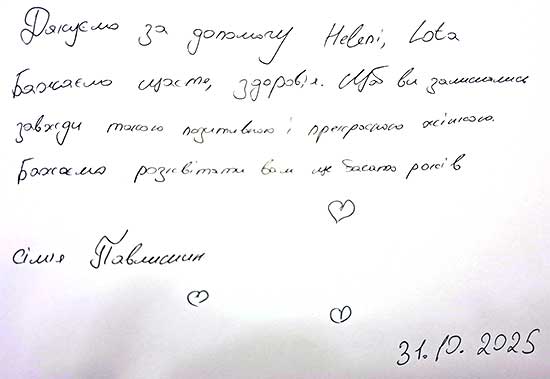 Дякуємо за допомогу Heleni, Lota
Бажаємо щастя, здоров'я. Щоб ви залишались
завжди такою позитивною і прекрасною жінкою.
Бажаємо розквітати вам ще багато років
сімія Павлишин
31.10.2025